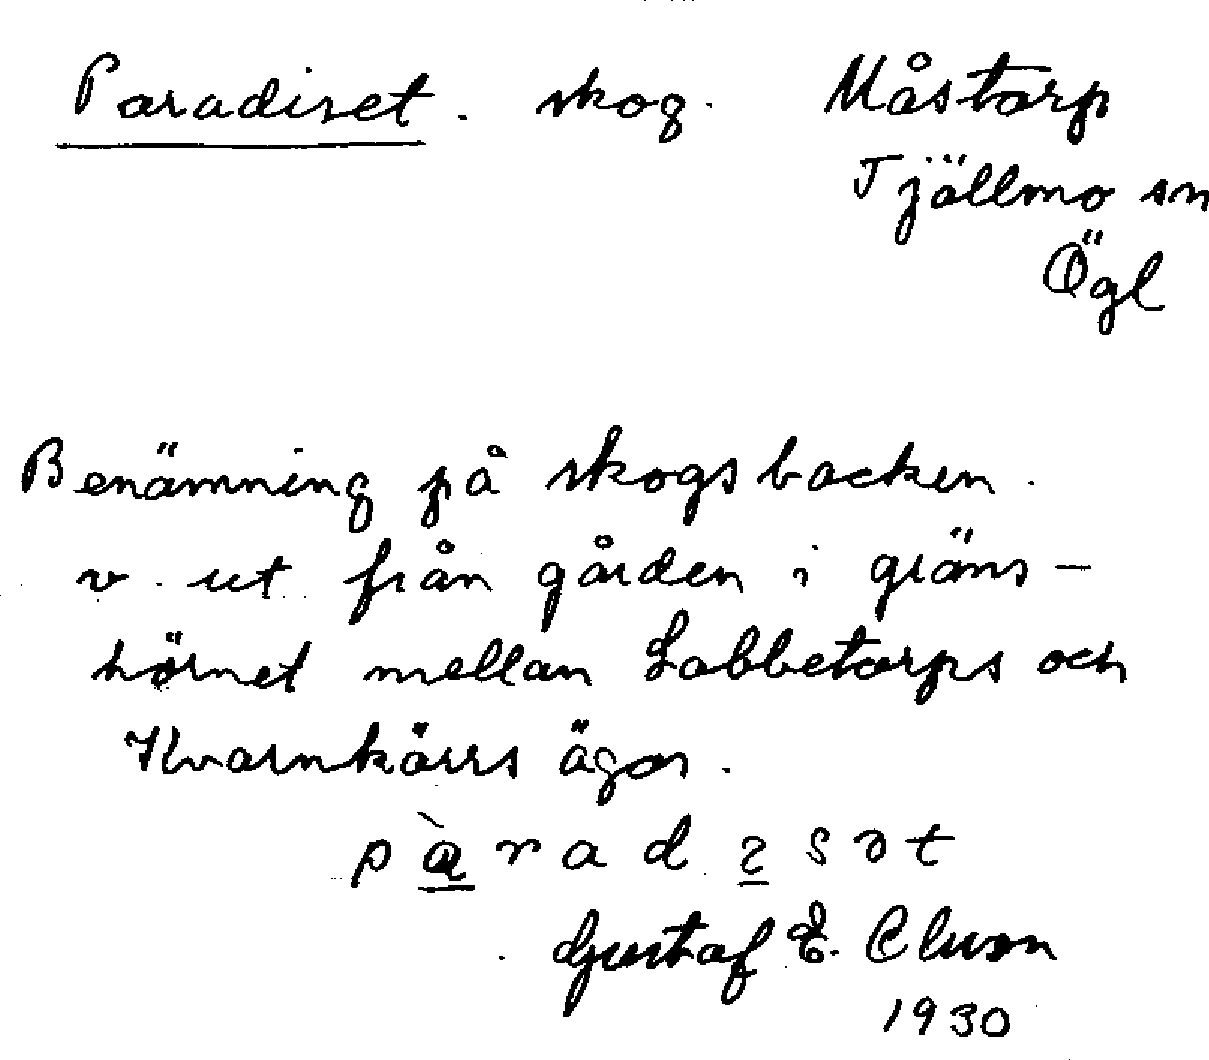 Paradiset. skog. Måstorp
Tjällmo sn
Ögl
Benämning på skogsbacken.
v. ut från gården i gräns-
hörnet mellan Labbetorps och
Kvarnkärrs ägor.
Gustaf E. Cluson
1930